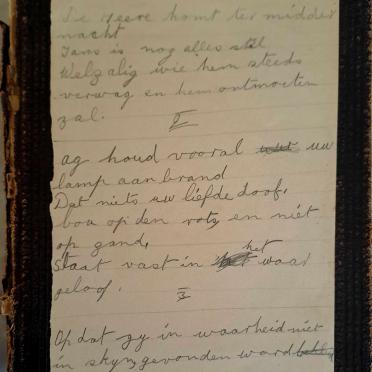 De Heere komt ter midder
nacht
Tans is nog alles stil
Welzalig wie hem steeds
verwag en hem ontmoeten
zal.
II
ag houd vooral uw
lamp aan brand
Dat niets uw liefde doof.
bou op den rots, en niet
op zand,
Staat vast in het waar
geloof.
III
Opdat gy in waarheid niet
in skyn, gevonden ward